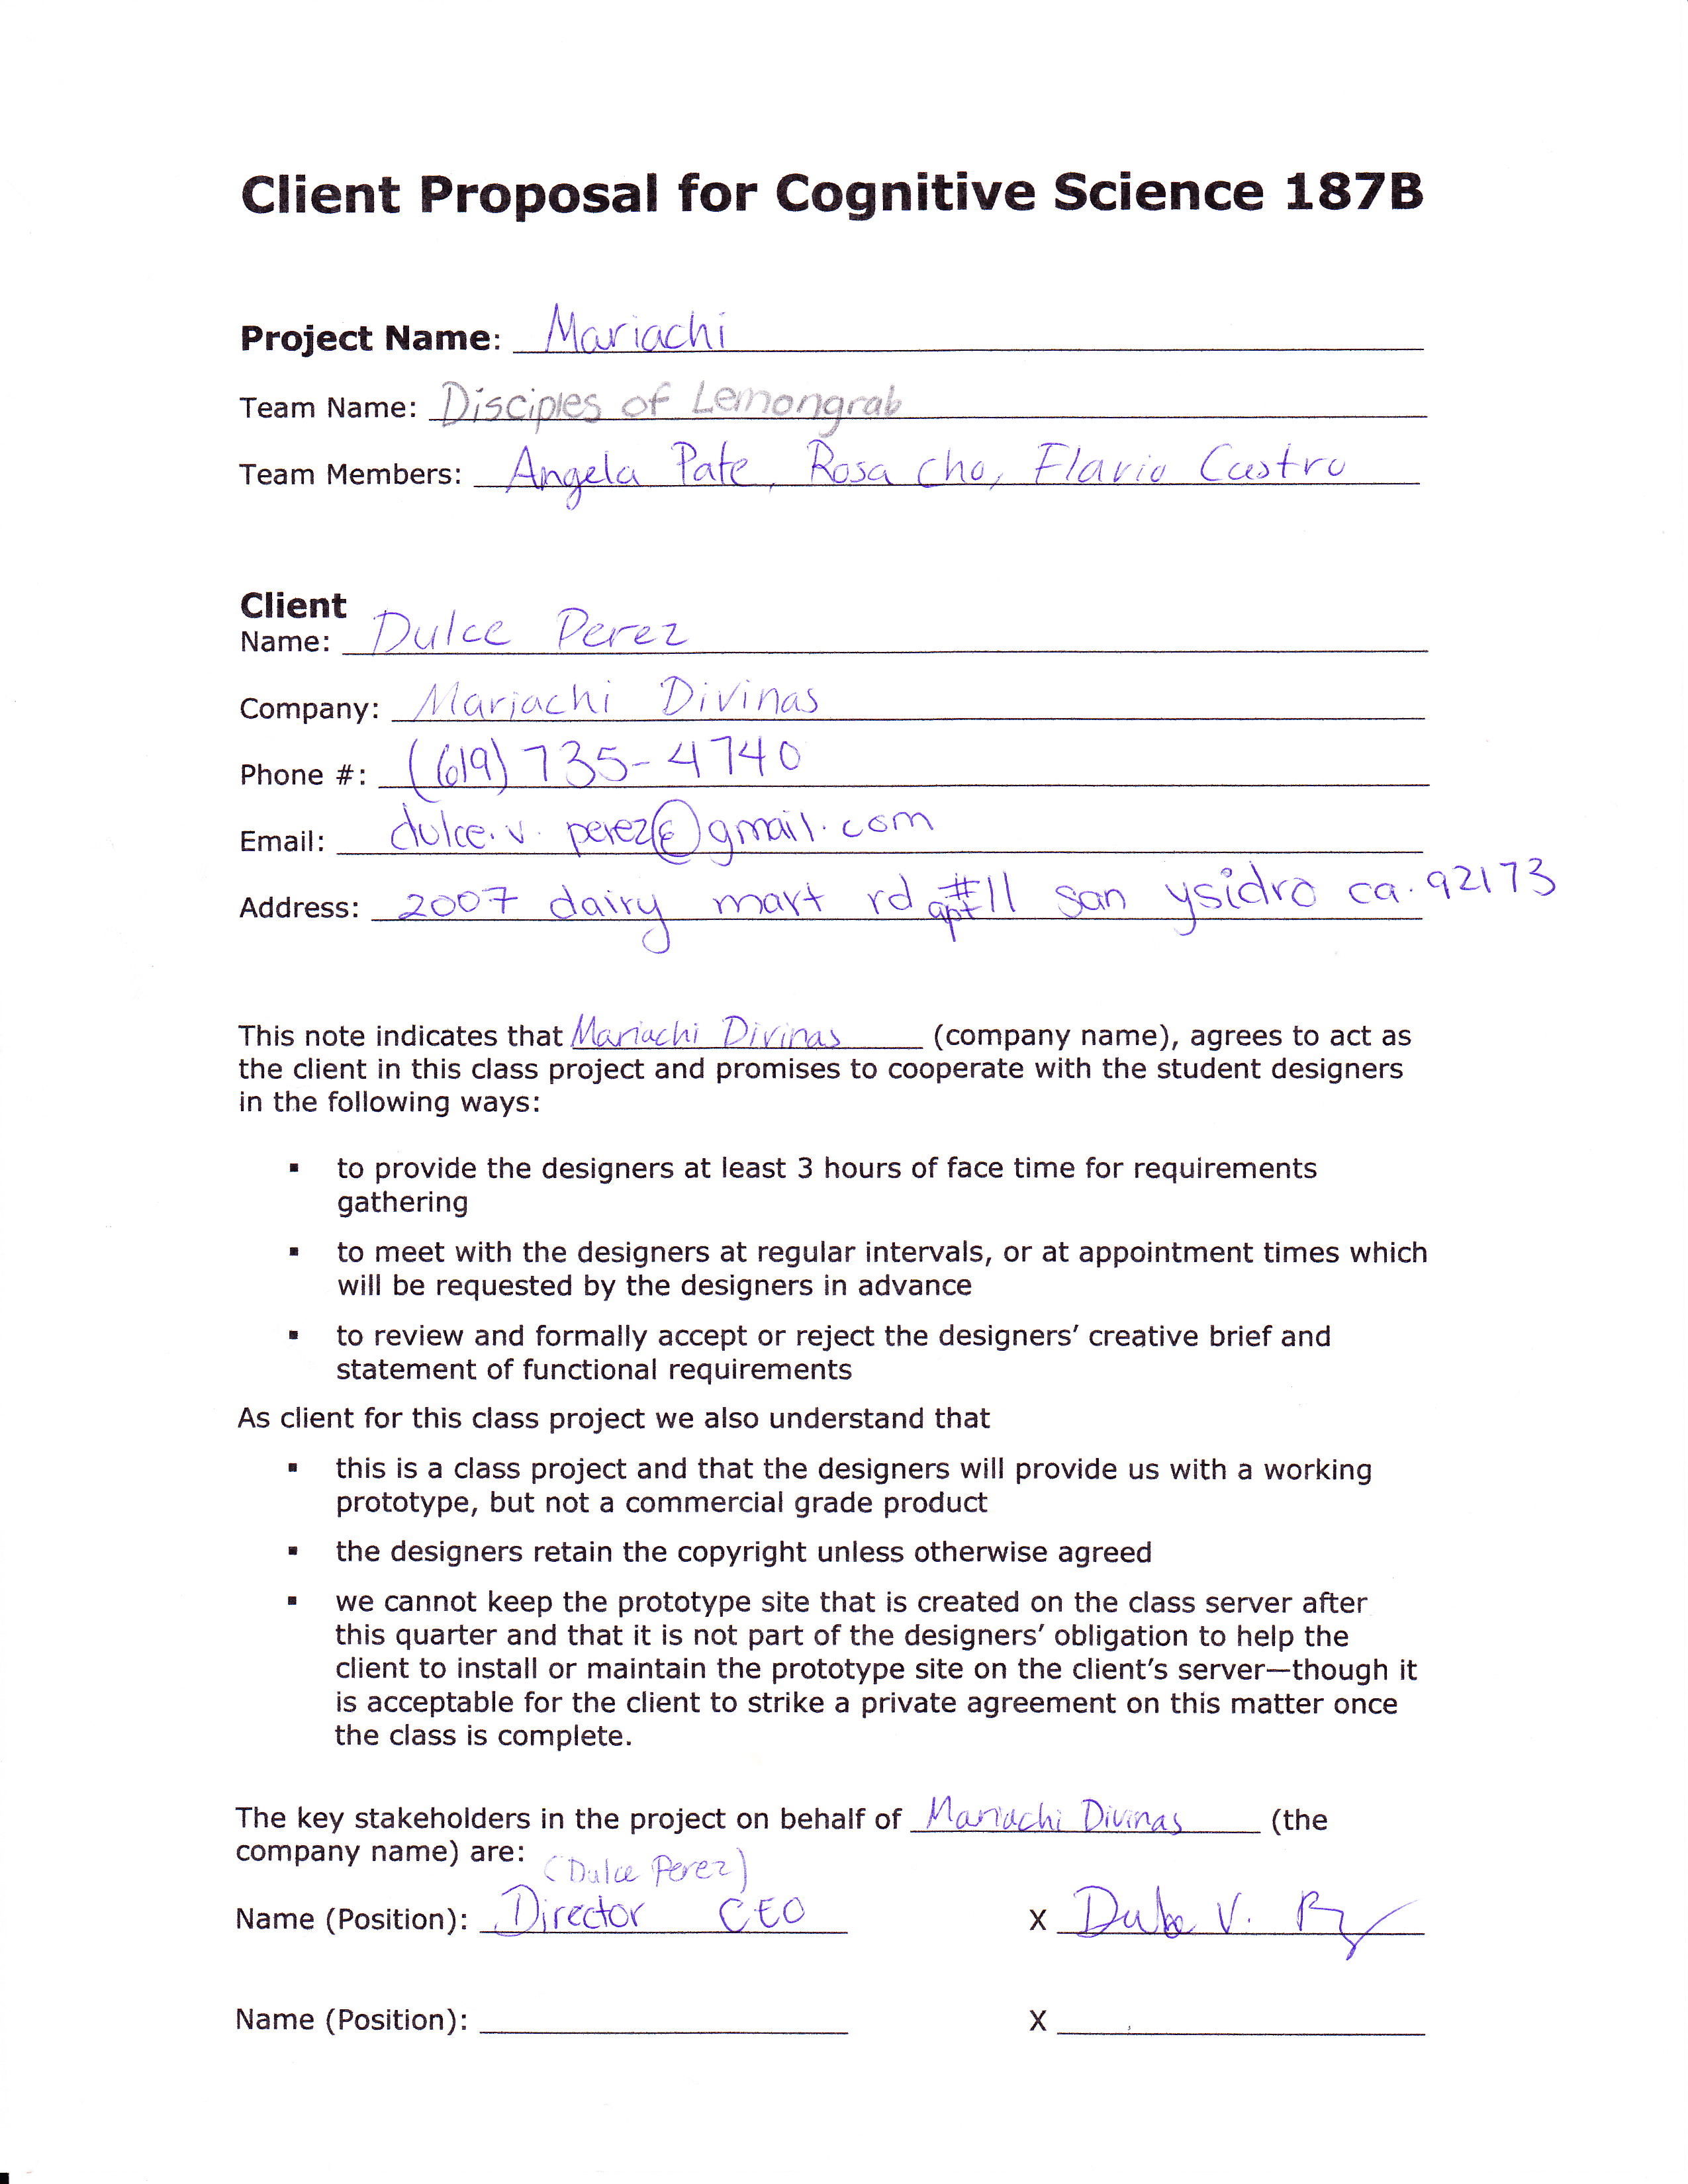 Client Proposal for Cognitive Science 187B
Project Name: Mariachi
Team Name: Disciples of Lemongrab
Team Members: Angela Pate, Rosa Cho, Flavio Castro
Client
Name: Dulce Perez
Company: Mariachi Divinas
Phone #: (619) 735-4740
Email: dulce.v.perez@gmail.com
Address: 2007 dairy mart rd apt #11 san ysidro ca. 92173
This note indicates that Mariachi Divinas (company name), agrees to act as
the client in this class project and promises to cooperate with the student designers
in the following ways:
▪ to provide the designers at least 3 hours of face time for requirements
gathering
▪ to meet with the designers at regular intervals, or at appointment times which
will be requested by the designers in advance
▪ to review and formally accept or reject the designers’ creative brief and
statement of functional requirements
As client for this class project we also understand that
▪ this is a class project and that the designers will provide us with a working
prototype, but not a commercial grade product
▪ the designers retain the copyright unless otherwise agreed
▪ we cannot keep the prototype site that is created on the class server after
this quarter and that it is not part of the designers’ obligation to help the
client to install or maintain the prototype site on the client’s server—though it
is acceptable for the client to strike a private agreement on this matter once
the class is complete.
The key stakeholders in the project on behalf of Mariachi Divinas (the
company name) are:
(Dulce Perez)
Name (Position): Director CEO X Dulce V. P
Name (Position): X